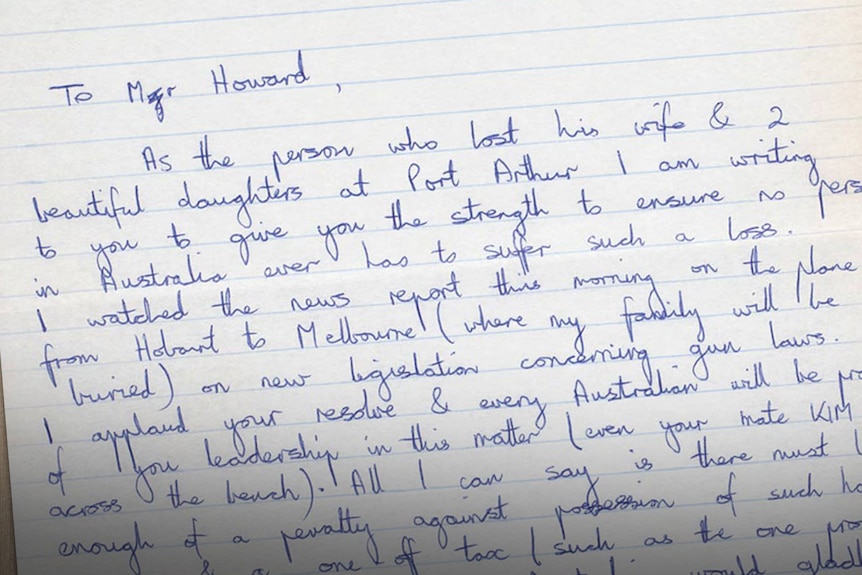 To Mr Howard,
As the person who lost his wife & 2
beautiful daughters at Port Arthur I am writing
to you to give you the strength to ensure no pers
in Australia ever has to suffer such a loss.
I watched the news report this morning on the plane
from Hobart to Melbourne (where my family will be
buried) on new legislation concerning gun laws.
I applaud your resolve & every Australian will be pro
of you leadership in this matter (even your mate KIM
across the bench). All I can say is there must
enough of a penalty against possession of such ho
& a one of tax (such as the one pro
would gladl